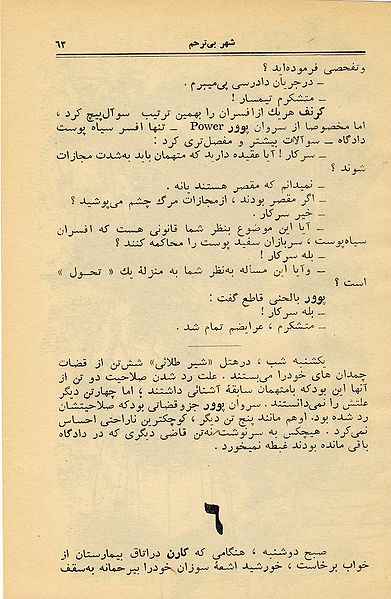 شهر بی‌ترحم ۶۳
وتفحصی فرموده‌اید ؟
ـ درجریان دادرسی پی‌میبرم .
ـ متشکرم تیمسار !
کرنف هریك ازافسران را بهمین ترتیب سوآل‌پیچ کرد ،
اما مخصوصا از سروان پوور Power ـ تنها افسر سیاه پوست
دادگاه ـ سوآلات بیشتر و مفصل‌تری کرد :
ـ سرکار ! آیا عقیده دارید که متهمان باید به‌شدت مجازات
شوند ؟
ـ نمیدانم که مقصر هستند یانه .
ـ اگر مقصر بودند ، ازمجازات مرگ چشم می‌پوشید ؟
ـ خیر سرکار .
ـ آیا این موضوع بنظر شما قانونی هست که افسران
سیاه‌پوست ، سربازان سفید پوست را محاکمه کنند ؟
ـ بله سرکار !
ـ وآیا این مساله به‌نظر شما به منزلهٔ یك « تحول »
است ؟
پوور بالحنی قاطع گفت :
ـ بله سرکار !
ـ متشکرم ، عرایضم تمام شد .
یکشنبه شب ، درهتل «شیر طلائی» شش‌تن از قضات
چمدان های خودرا می‌بستند . علت رد شدن صلاحیت دو تن از
آنها این بودکه بامتهمان سابقهٔ آشنائی داشتند ؛ اما چهارتن دیگر
علتش را نمی‌دانستند . سروان پوور جزوقضاتی بودکه صلاحیتشان
رد شده بود. اوهم مانند پنج تن دیگر ، کوچکترین ناراحتی احساس
نمی‌کرد . هیچکس به سرنوشت‌نه‌تن قاضی دیگری که در دادگاه
باقی مانده بودند غبطه نمیخورد .
۶
صبح دوشنبه ، هنگامی که کارن دراتاق بیمارستان از
خواب برخاست ، خورشید اشعهٔ سوزان خودرا بیرحمانه به‌سقف